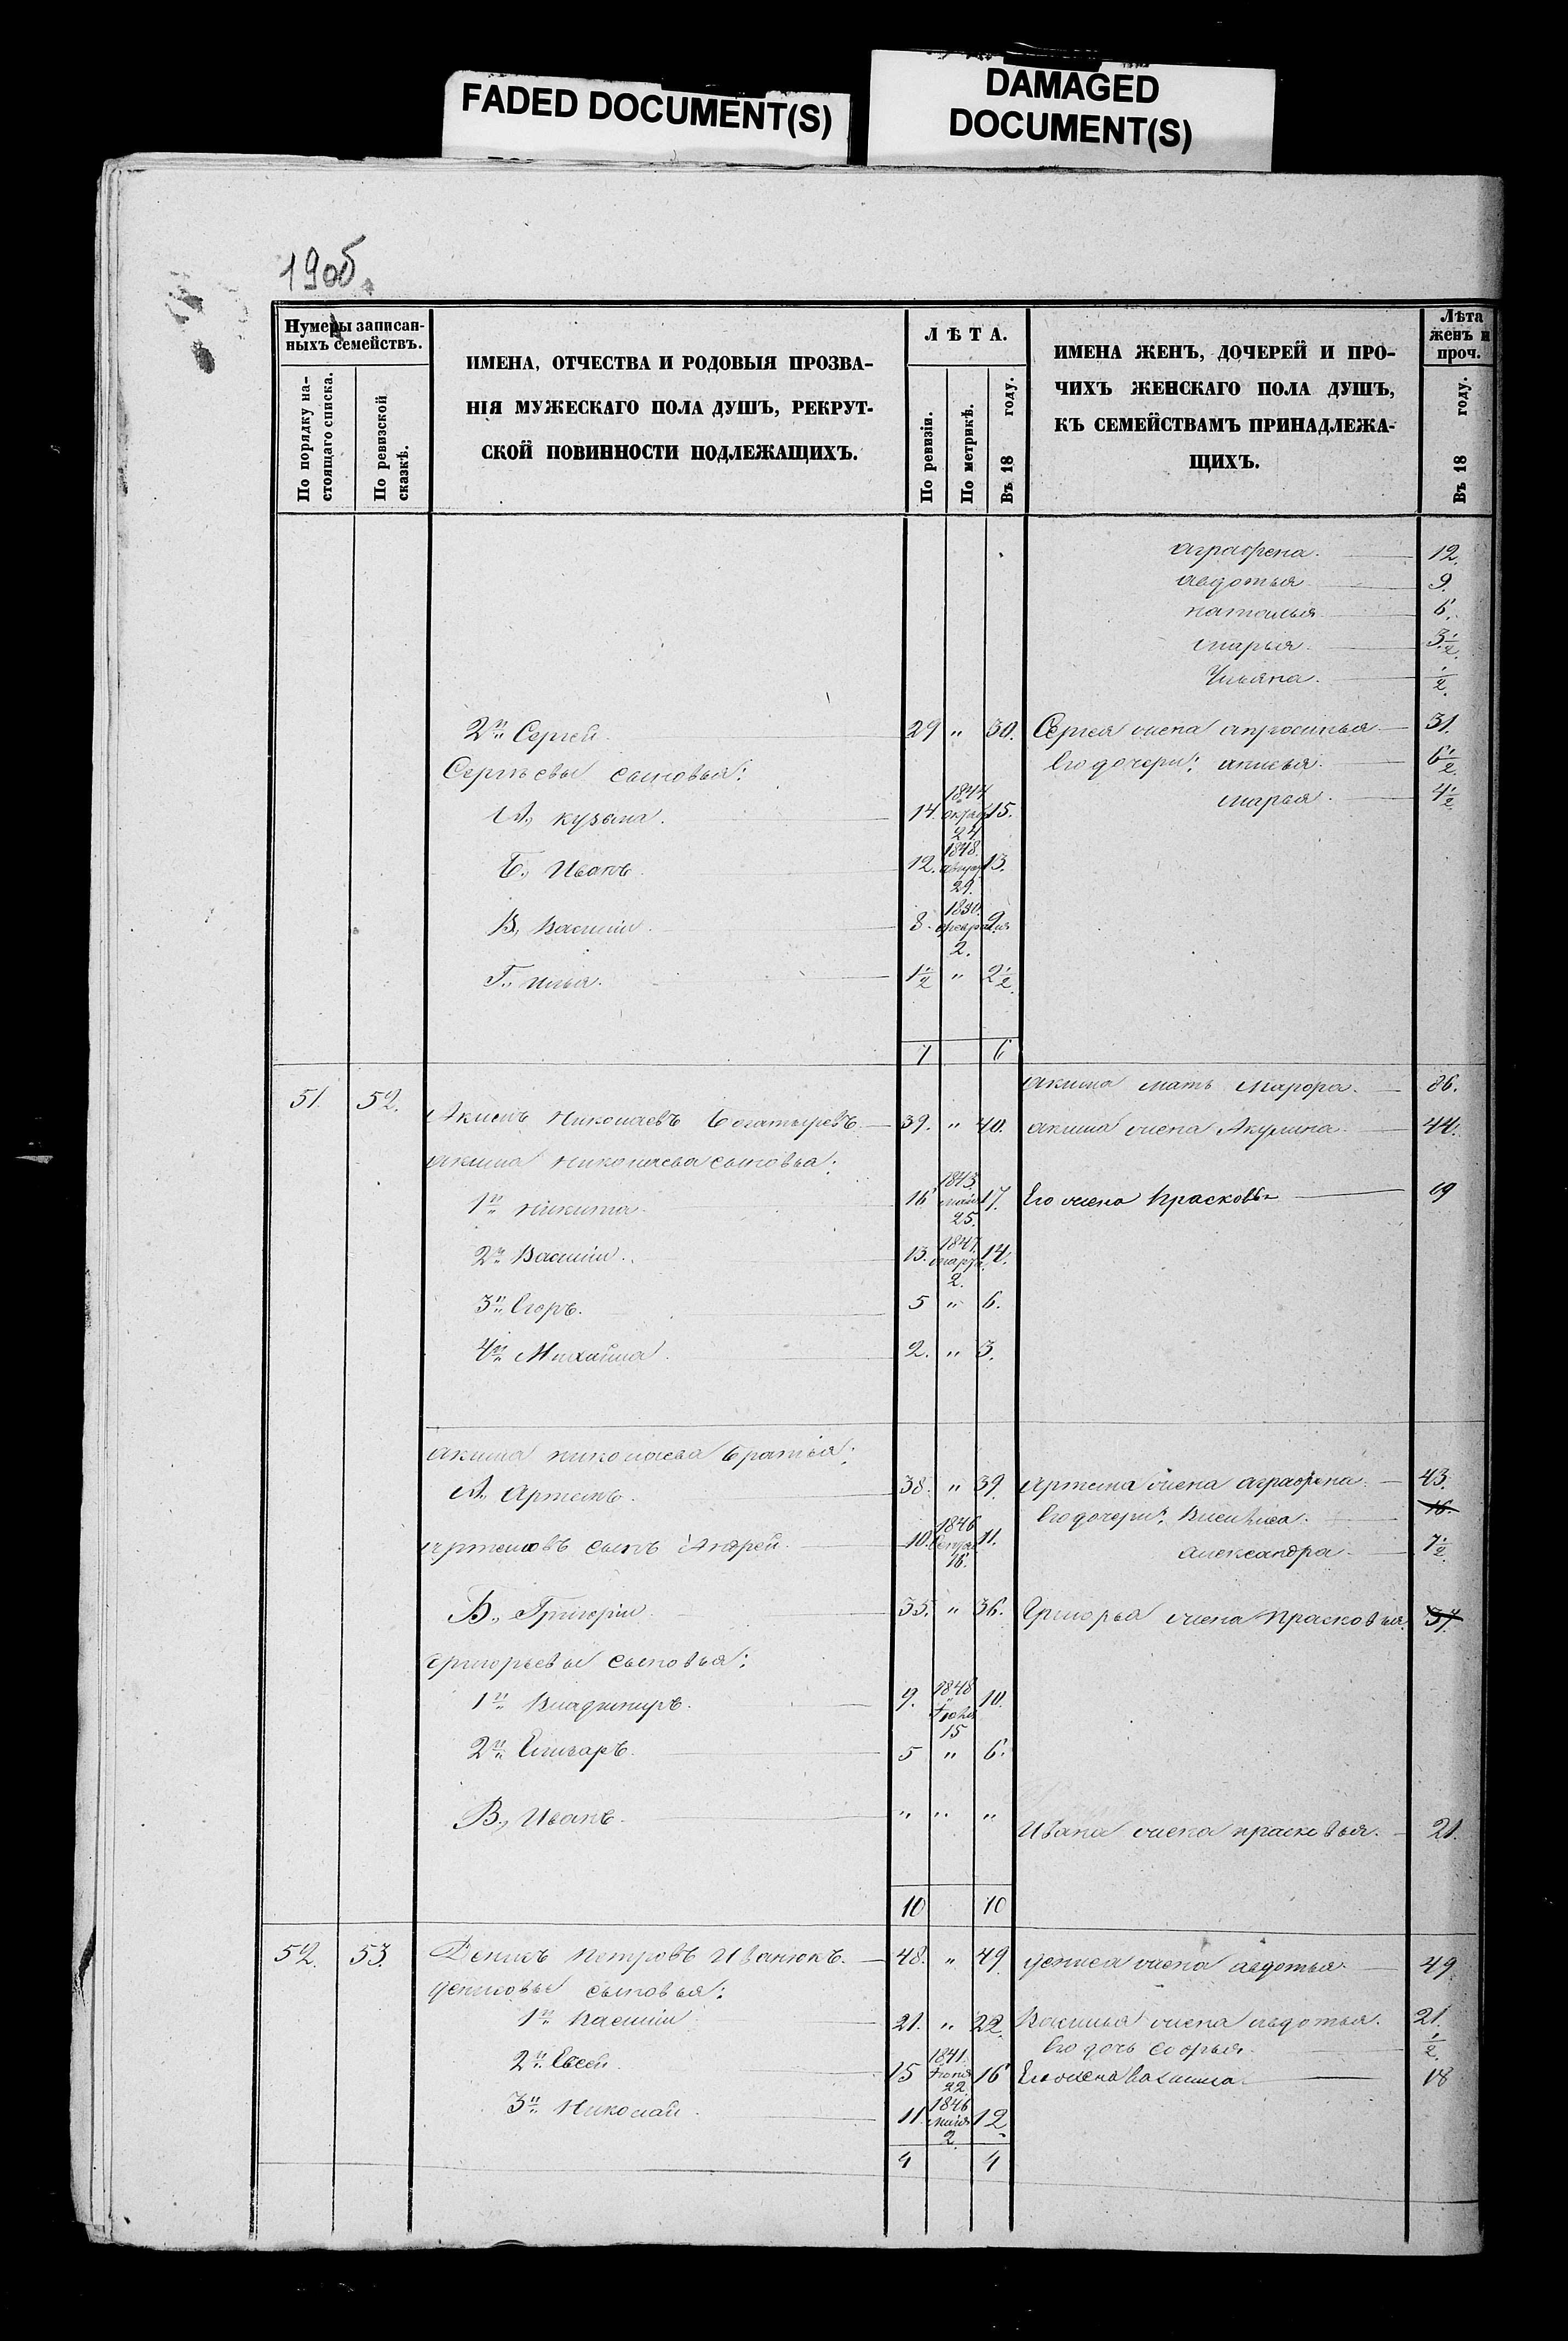 FADED DOCUMENT(S)
DAMAGED
DOCUMENT(S)
190об.
Нумеры записан-
ныхъ семействъ.
По порядку на-
стоящаго списка.
По ревизской
сказкѣ.
ИМЕНА, ОТЧЕСТВА И РОДОВЫЯ ПРОЗВА-
НІЯ МУЖЕСКАГО ПОЛА ДУШЪ, РЕКРУТ-
СКОЙ ПОВИННОСТИ ПОДЛЕЖАЩИХЪ.
ЛѢТА.
По ревизіи.
По метрикѣ.
Въ 18 году.
ИМЕНА ЖЕНЪ, ДОЧЕРЕЙ И ПРО-
ЧИХЪ ЖЕНСКАГО ПОЛА ДУШЪ,
КЪ СЕМЕЙСТВАМЪ ПРИНАДЛЕЖА-
ЩИХЪ.
Лѣта
женъ и
проч.
Въ 18 году.
аграфена. 12.
авдотья 9.
наталья 6.
марья. 3 1/2.
Ульяна. 1/2.
2й Сергей. 29 " 30. Сергея жена апросинья 31.
Сергѣевы сыновья: Его дочери: анисья. 6 1/2.
А., кузьма. 14. 1844 24 15. марья. 4 1/2.
Б., Иванъ. 12. 1848. 29. 13.
В., Василій. 8. 1850. февраля 2. 9
Г., илья. 1 1/2 " 2 1/2.
7 6
акима мать Марфа. 86.
51. 52. Акимъ Николаевъ Богатыревъ. 39. " 40. акима жена Акулина. 44.
акима николаева сыновья:
1й никита 16 1843. мая 25. 17. Его жена Прасковья 19
2й Василій. 13. 1847. марта 2. 14.
3й Егоръ. 5 " 6.
4й Михайла. 2. " 3.
акима николаева братья:
А., Артемъ. 38. " 39. артема жена аграфена. 43.
Его дочери: Василиса. 16.
артемовъ сынъ Андрей. 10. 1846 16. 11. александра. 7 1/2
Б., Григорій. 35. " 36. Григорья жена прасковья. 37.
григорьевы сыновья:
1й Владимиръ. 9. 1848 15 10.
2й Елизаръ. 5 " 6.
В., Иванъ. " " "
Ивана жена прасковья. 21.
10 10
52. 53. Денисъ Петровъ Иванюкъ. 48. " 49 дениса жена авдотья. 49
денисовы сыновья:
1й Василій 21. " 22. Василья жена авдотья. 21.
Его дочь софья. 1/2.
2й Евсей. 15 1841. 22. 16 Его жена 18
3й Николай. 11. 1846 мая 2. 12.
4 4